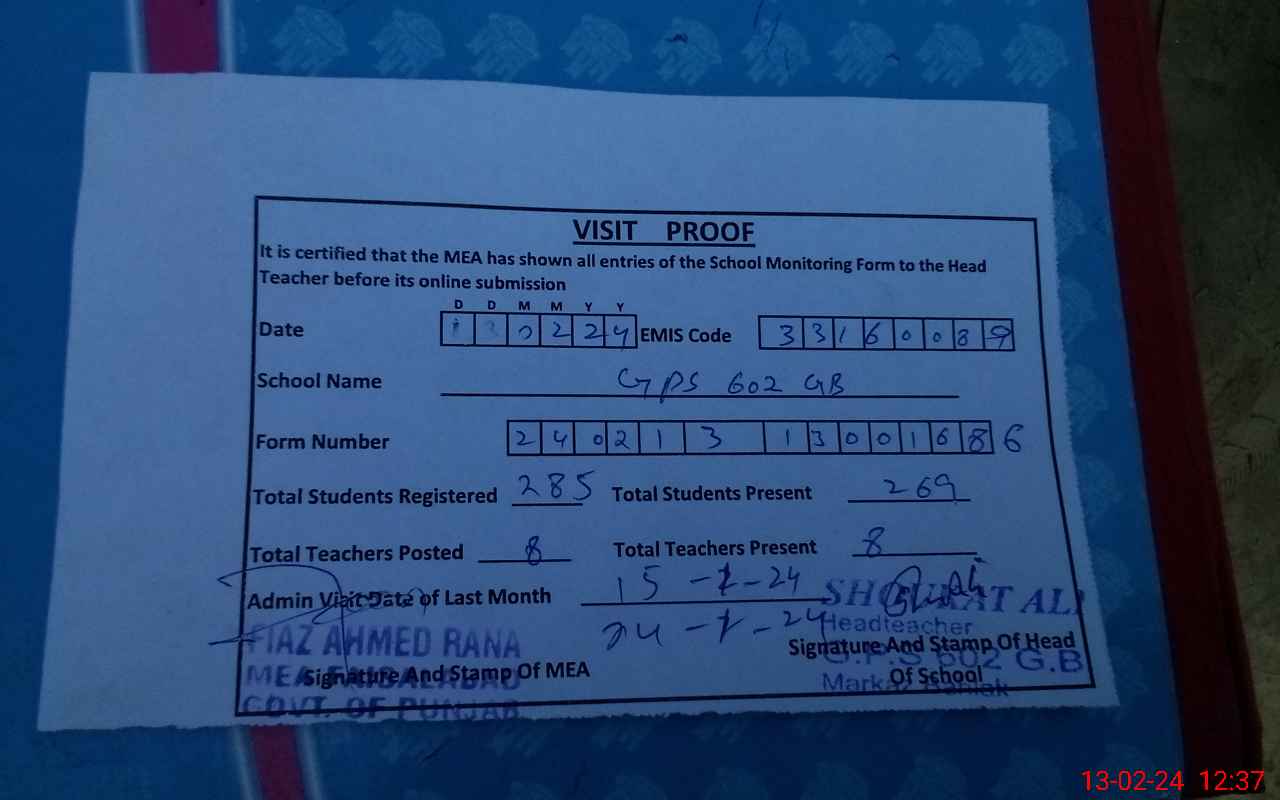 VISIT PROOF
It is certified that the MEA has shown all entries of the School Monitoring Form to the Head
Teacher before its online submission
D D M M Y Y
Date 1 3 0 2 2 4 EMIS Code 3 3 1 6 0 0 8 9
School Name GPS 602 GB
Form Number 2 4 0 2 1 3 1 3 0 0 1 6 8 6
Total Students Registered 285 Total Students Present 269
Total Teachers Posted 8 Total Teachers Present 8
Admin Visit Date of Last Month 15-1-24
24-1-24
SHOUKAT ALI
Headteacher
Signature And Stamp Of Head
Of School
G.P.S 602 G.B
Markaz
FIAZ AHMED RANA
Signature And Stamp Of MEA
MEA FAISALABAD
GOVT. OF PUNJAB
13-02-24 12:37